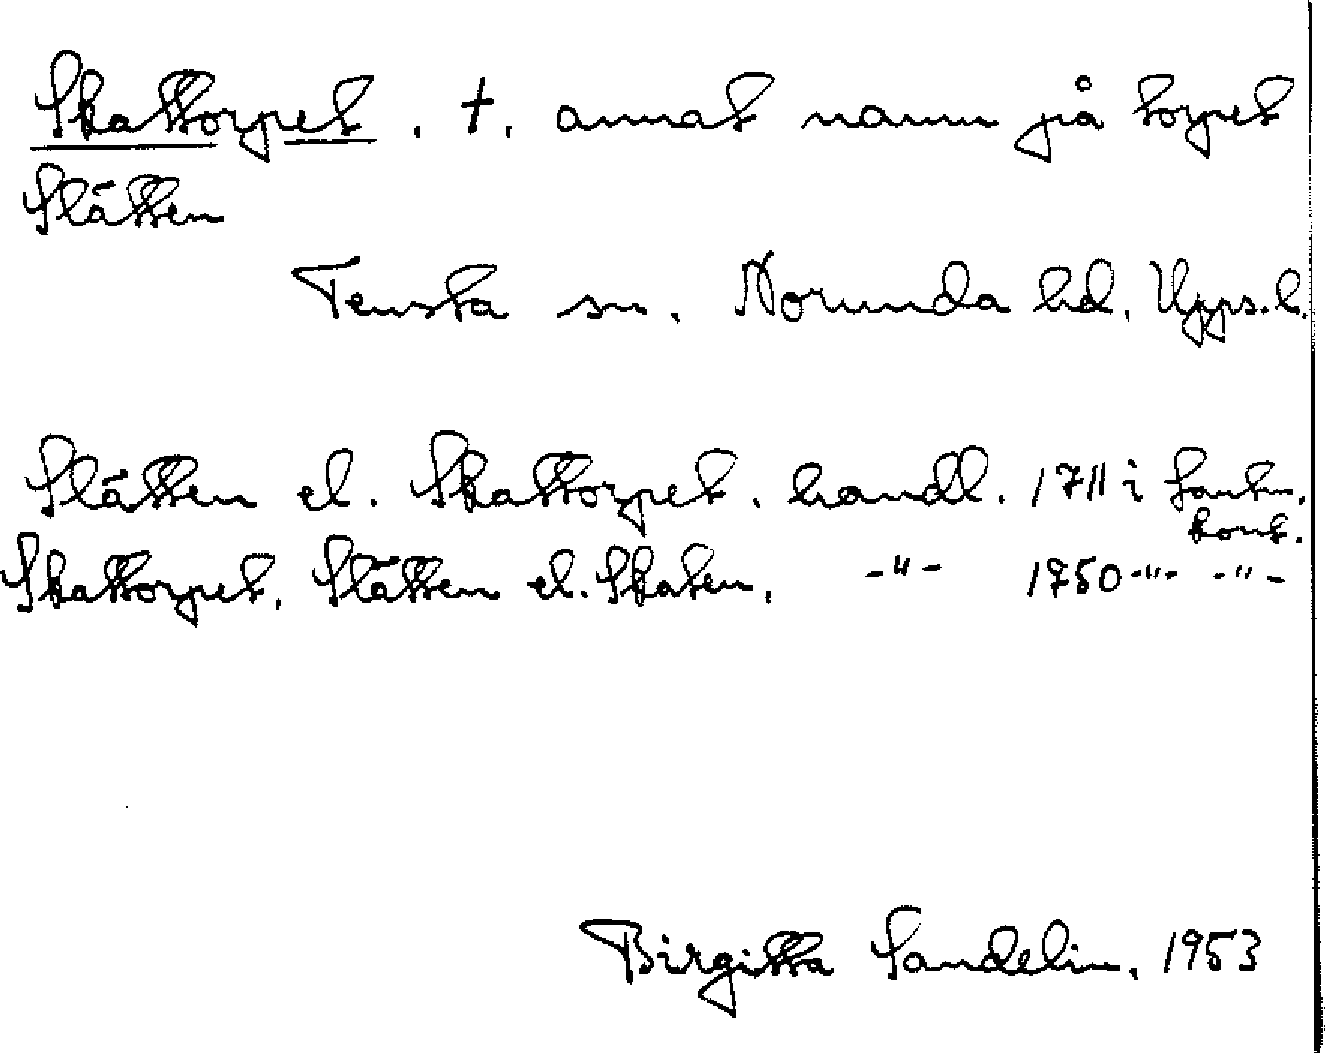 Skattorpet, †, annat namn på torpet
Slätten
Tensta sn. Norunda hd. Upps.l.
Slätten el. Skattorpet, handl. 1711 i Lantm.
kont.
Skattorpet, Slätten el. Skaten, -"- 1750 -"- -"-
Birgitta Sandelin, 1953